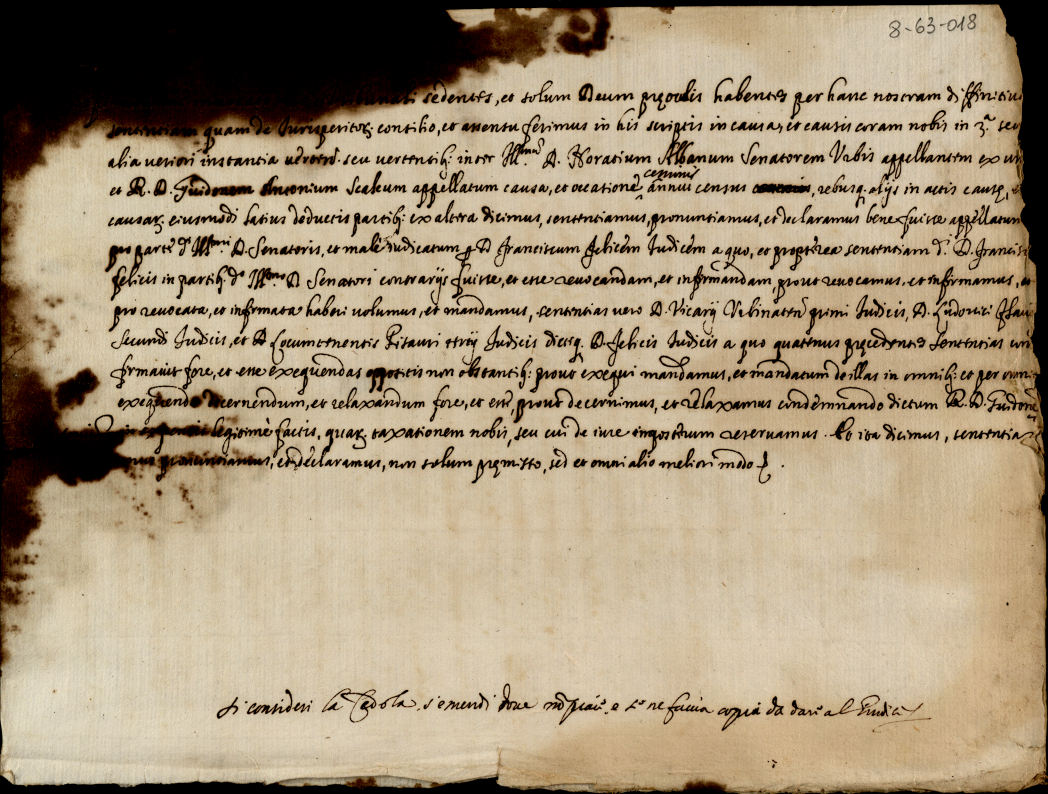 8-63-018
sedentes, et solum Deum pręoculis habentes per hanc nostram diffinitiu
sententiam quam de Iurisperitoꝝ consilio, et assensu ferimus in his scriptis in causa, et causis coram nobis in 3.ª seu
alia ueriori instantia uerten. seu uertentibꝫ inter Ill.mum D. Horatium Albanum Senatorem Vrbis appellantem ex un
et R. D. Guidonem Antonium Scalcum appellatum causa, et occatione annui census, rebusqꝫ alijs in actis causę, et
census
causaꝝ eiusmodi latius deductis partibꝫ ex altera dicimus, sententiamus, pronuntiamus, et declaramus bene fuisse appellatum
pro parte d.i Ill.mi D. Senatoris, et male iudicatum ꝑ D. Franciscum Felicem Iudicem a quo, et propterea sententiam d.i D. Francisci
felicis in partibꝫ d.o Ill.mo D. Senatori contrarijs fuisse, et esse reuocandam, et infirmandam, prout reuocamus, et infirmamus, et
pro reuocata, et infirmata haberi uolumus, et mandamus, sententias uero D. Vicarij Vrbinaten. primi Iudicis, D. Ludouici
secundi Iudicis, et D. Locumtenentis Pisauri tertij Iudicis dictiqꝫ D. Felicis Iudicis a quo quatenus pręcedentes sententias con
firmauit fore, et esse exequendas oppositis non obstantibꝫ prout exequi mandamus, et mandatum de illas in omnibꝫ et per omnia
exequendo decernendum, et relaxandum fore, et esse, prout decernimus, et relaxamus condemnando dictum R. D. Guidonē
in expensis legitimè factis, quaꝝ taxationem nobis, seu cui de iure imposterum reseruamus. Et ita dicimus, sententia
mus pronuntiamus, et declaramus, non solum pręmisso, sed et omni alio meliori modo
Si consideri la Cedola, s'emendi doue nõ piace, e se ne faccia copia da dare al Giudice